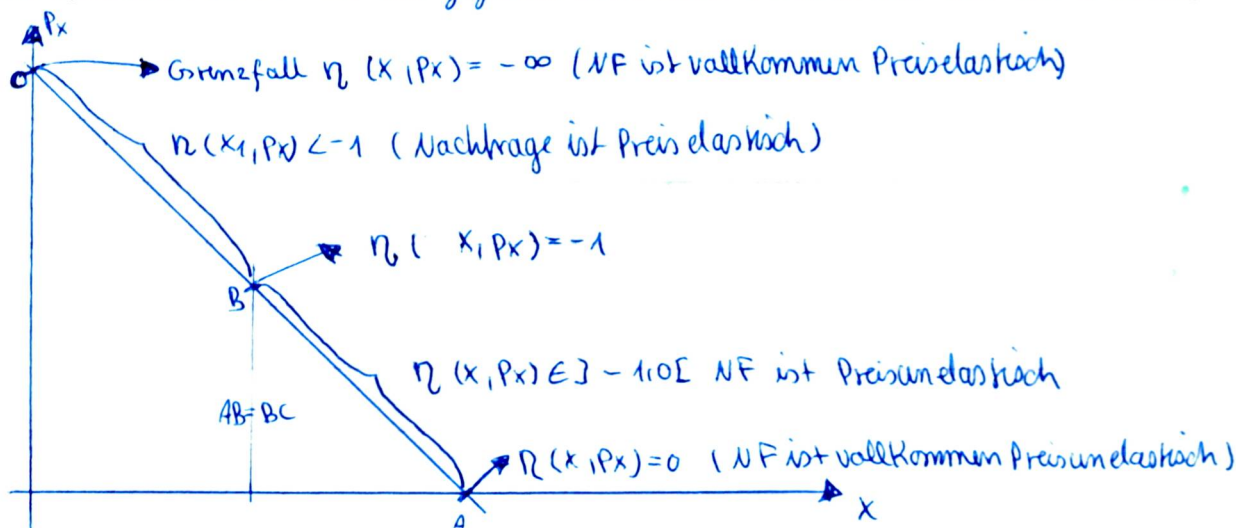 Px
C
Grenzfall η (x, Px) = -∞ (NF ist vallkommen Preiselastisch)
η (x1, Px) < -1 (Nachfrage ist Preiselastisch)
η ( x, Px) = -1
B
η (x, Px) ∈ ] -1;0[ NF ist Preisunelastisch
AB = BC
η (x, Px) = 0 (NF ist vollkommen Preisunelastisch)
A
X